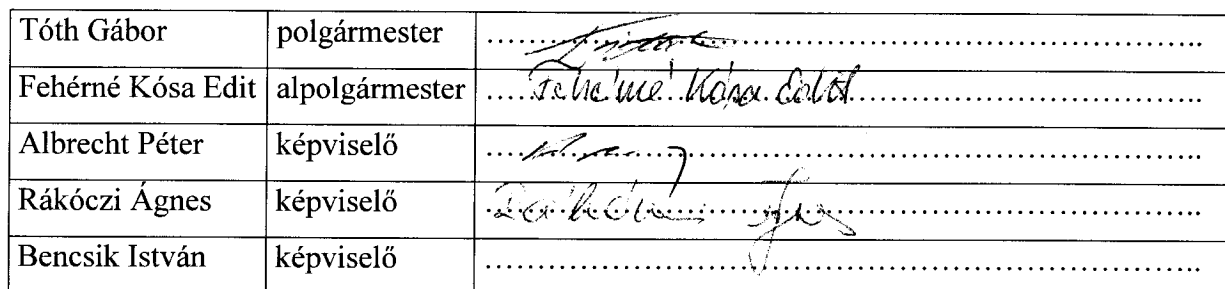 Tóth Gábor polgármester ........................................................
Fehérné Kósa Edit alpolgármester .... Fehérné Kósa Edit ........................
Albrecht Péter képviselő ........................................................
Rákóczi Ágnes képviselő ........................................................
Bencsik István képviselő ........................................................